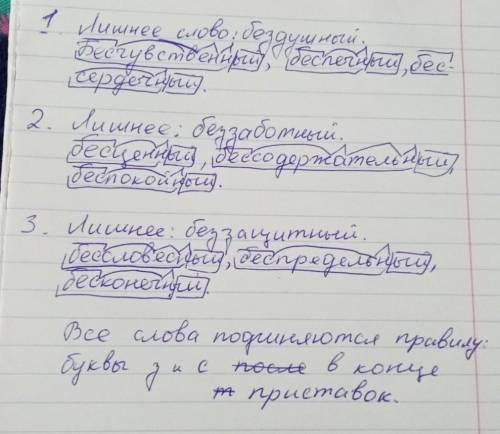 1. Лишнее слово: бездушный.
Бесчувственный, беспечный, бес-
сердечный.
2. Лишнее: беззаботный.
бесценный, бессодержательный,
беспокойный.
3. Лишнее: беззащитный.
бессловесный, беспредельный,
бесконечный.
Все слова подчиняются правилу:
буквы з и с после в конце
т приставок.